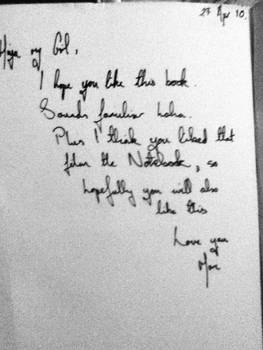 27 Apr 10.
my Girl,
I hope you like this book.
Sounds familiar haha.
Plus I think you liked that
film the Notebook, so
hopefully you will also
like this
Love you